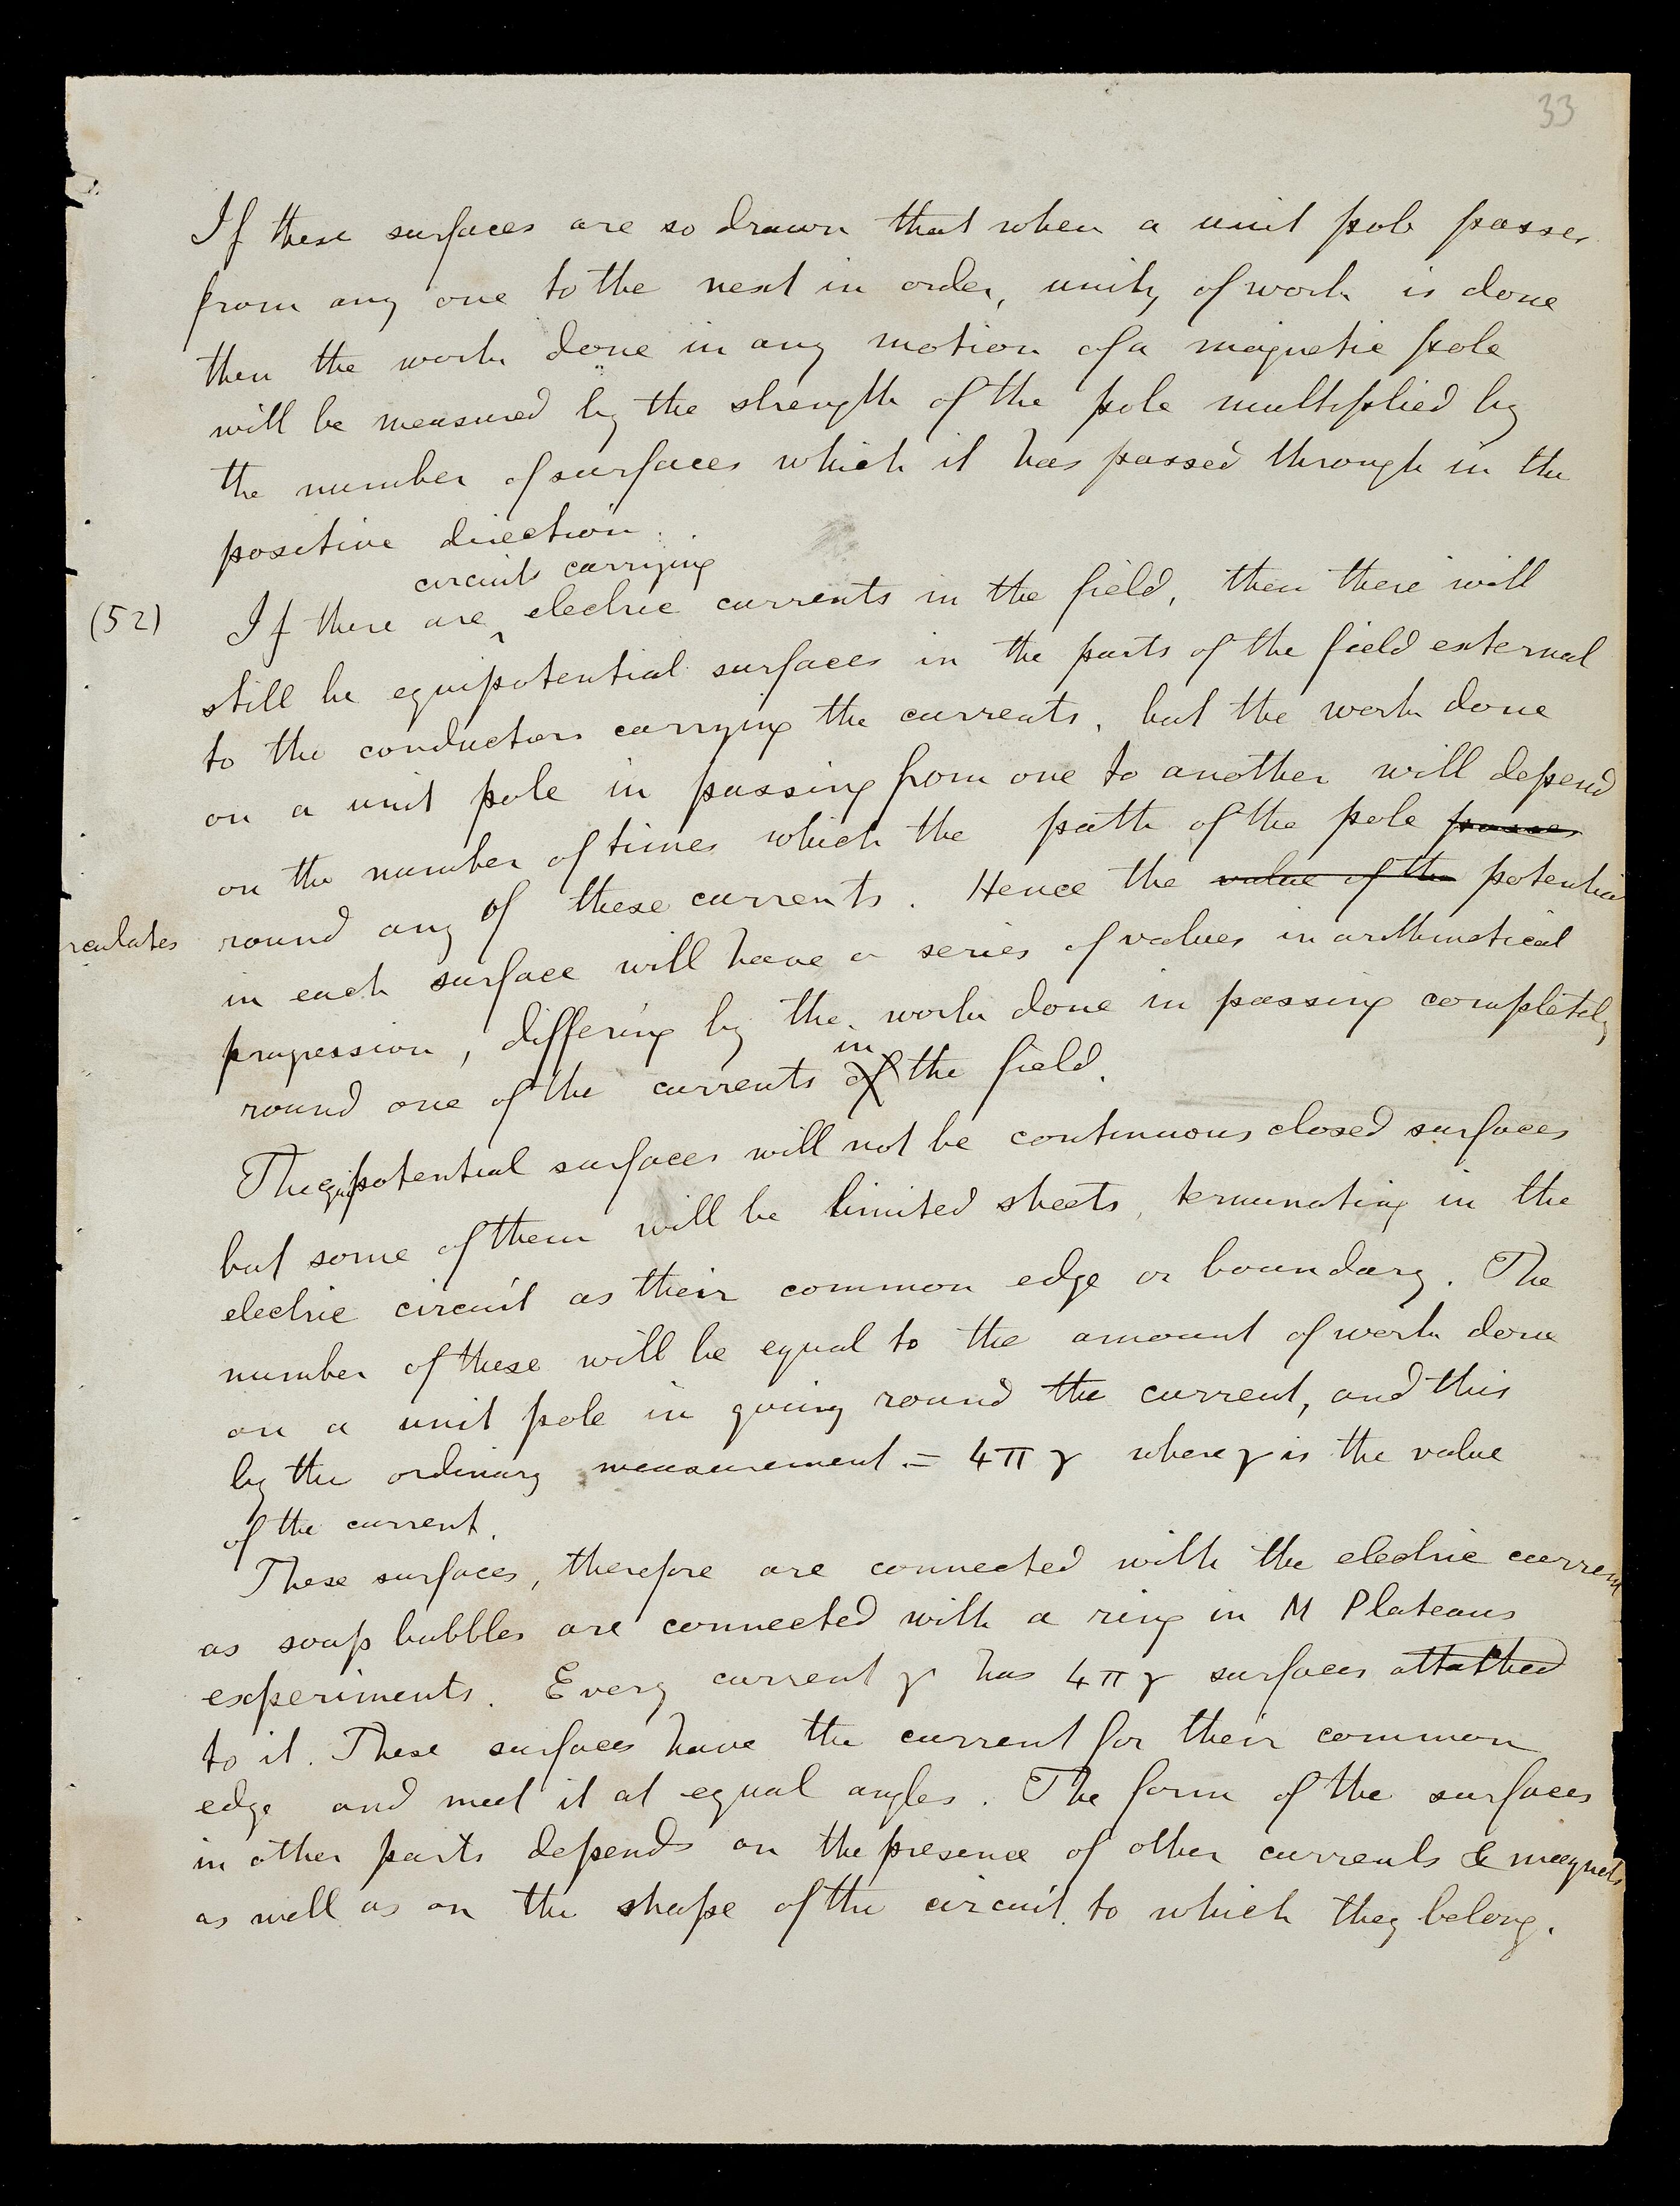 33
If these surfaces are so drawn that when a unit pole passes
from any one to the next in order, unity of work is done
then the work done in any motion of a magnetic pole
will be measured by the strength of the pole multiplied by
the number of surfaces which it has passed through in the
positive direction.
circuits carrying
(52) If there are ‸ electric currents in the field, then there will
still be equipotential surfaces in the parts of the field external
to the conductors carrying the currents, but the work done
on a unit pole in passing from one to another will depend
on the number of times which the path of the pole passes
rculates round any of these currents. Hence the value of the potential
in each surface will have a series of values in arithmetical
progression, differing by the work done in passing completely
in
round one of the currents of the field.
The equipotential surfaces will not be continuous closed surfaces
but some of them will be limited sheets, terminating in the
electric circuit as their common edge or boundary. The
number of these will be equal to the amount of work done
on a unit pole in going round the current, and this
by the ordinary measurement = 4πγ where γ is the value
of the current.
These surfaces, therefore are connected with the electric current
as soap bubbles are connected with a ring in M Plateaus
experiments. Every current γ has 4πγ surfaces attached
to it. These surfaces have the current for their common
edge and meet it at equal angles. The form of the surfaces
in other parts depends on the presence of other currents & magnets
as well as on the shape of the circuit to which they belong.